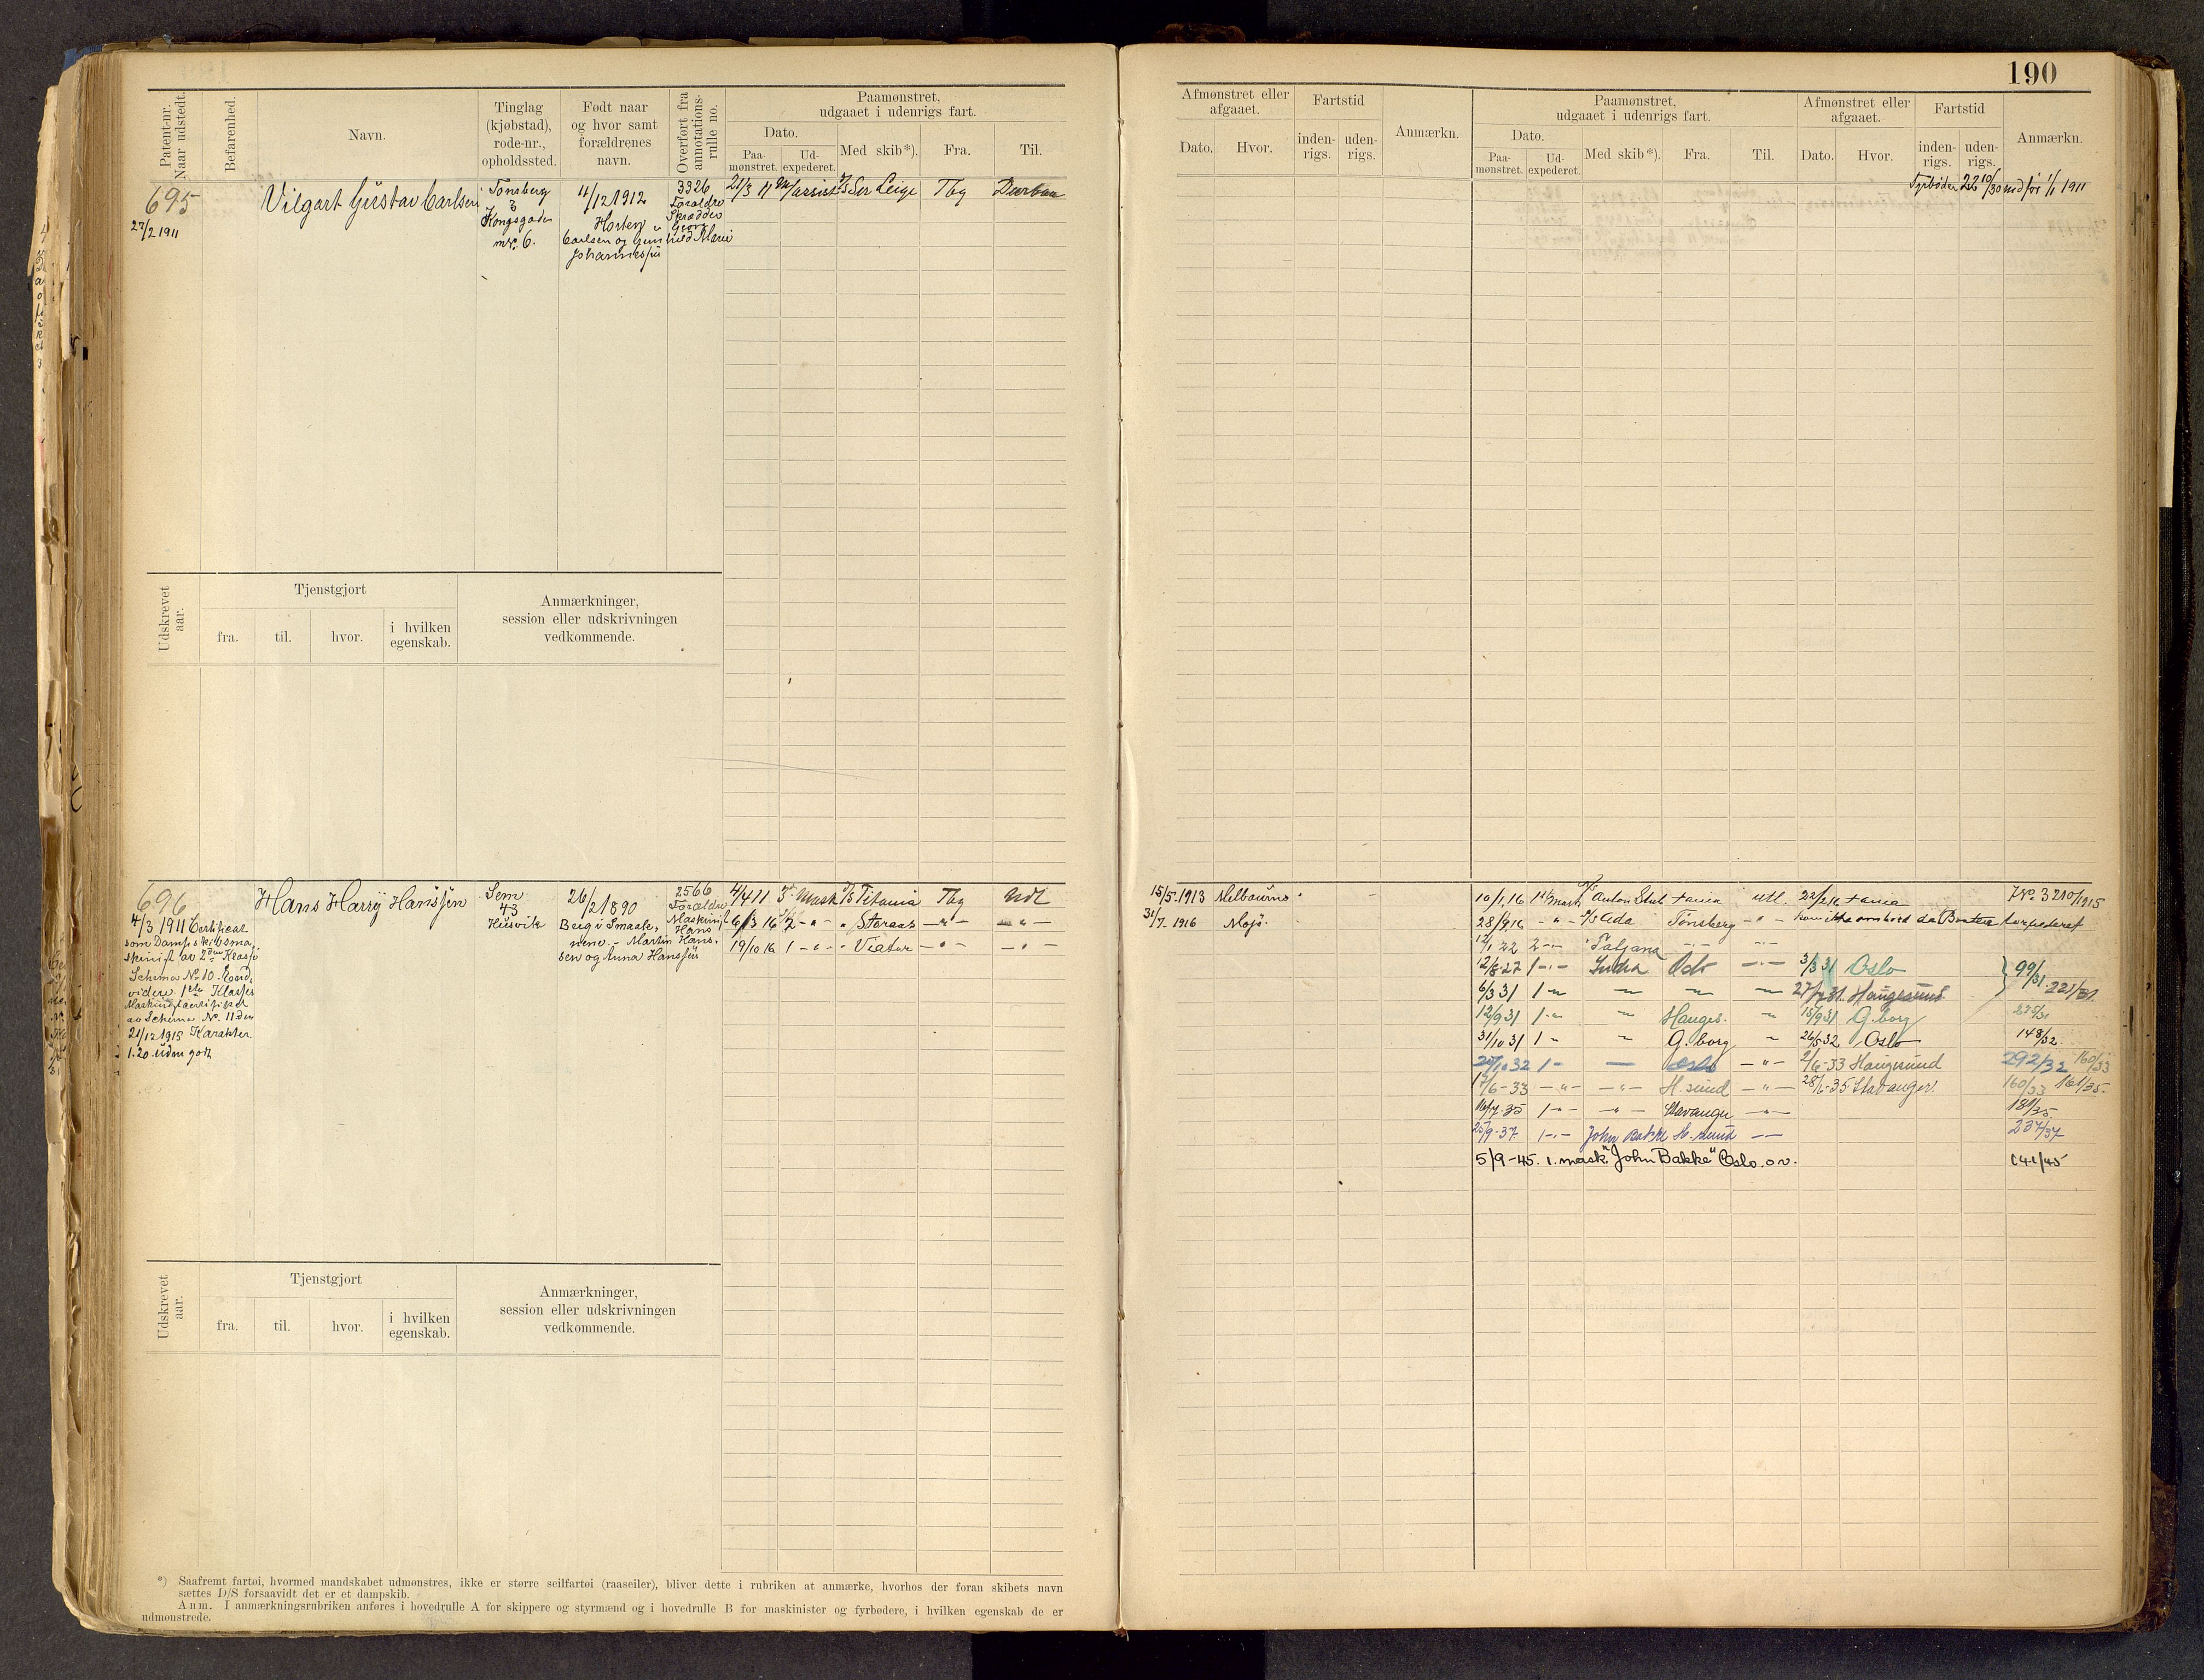 190
Patent-nr. Naar udstedt.
Befarenhed.
Navn.
Tinglag (kjøbstad), rode-nr., opholdssted.
Født naar og hvor samt forældrenes navn.
Overført fra annotations-rulle no.
Paamønstret, udgaaet i udenrigs fart.
Dato.
Paa-mønstret.
Ud-expederet.
Med skib*).
Fra.
Til.
Afmønstret eller afgaaet.
Dato.
Hvor.
Fartstid
inden-rigs.
uden-rigs.
Anmærkn.
Paamønstret, udgaaet i udenrigs fart.
Dato.
Paa-mønstret.
Ud-expederet.
Med skib*).
Fra.
Til.
Afmønstret eller afgaaet.
Dato.
Hvor.
Fartstid
inden-rigs.
uden-rigs.
Anmærkn.
695
27/2 1911
Vilgart Gustav Carlsen
Tønsberg
3
Kongsgaden
nr. 6.
Horten
Carlsen og Gunhild Marie
Johannessen
3326
Forældre
Skrædder
Georg
21/3 11
Tbg
Durban
Fyrbøder
før 1/1 1911
Udskrevet aar.
Tjenstgjort
fra.
til.
hvor.
i hvilken egenskab.
Anmærkninger, session eller udskrivningen vedkommende.
696
4/3 1911 Certificat
som Dampskibsma
skinist av 2den Klasse
Schema No 10. End
videre 1ste Klasses
Maskinistcertifikat
av Schema No. 11 den
21/12 1915 Karakter
1.20 uden godt
Hans Harry Hanssen
Sem
43
Husvik
26/2 1890
Berg i Smaale,
nene. - Martin Hans-
sen og Anna Hanssen
2566
Forældre
Maskinist
Hans
4/4 11 3 Mask D/S Titania Tbg Udl
6/3 16 2 - " - " Storaas - " - - " -
19/10 16 1 - " - " Viator - " - - " -
15/5 1913 Melbourne
31/7 1916 Mojø
10/1 16 Mask Anton utl.
28/9 16 - " - D/S Ada Tønsberg - " - torpederet
12/1 22 2 - " - Tatjana
12/8 27 1 - " - Indra Oslo - " - 3/3 31 Oslo 99/31
6/3 31 1 - Haugesund 221/31
12/9 31 1 - Hauges. 15/9 31 G.borg
31/10 31 1 - G.borg 26/5 32 Oslo 148/32
32 1 - Oslo - " - 2/6-33 Haugesund 292/32 160/33
7/6-33 - " - - " - H.sund - " - 28/6-35 Stavanger 160/33 161/35.
35 1 - " - - " - Stavanger - " - 181/35
25/9-37 1 - " - John Bakke H.sund 237/37
5/9-45. 1. mask "John Bakke" Oslo. o.v. 141/45
Udskrevet aar.
Tjenstgjort
fra.
til.
hvor.
i hvilken egenskab.
Anmærkninger, session eller udskrivningen vedkommende.
*) Saafremt fartøi, hvormed mandskabet udmønstres, ikke er større seilfartøi (raaseiler), bliver dette i rubriken at anmærke, hvorhos der foran skibets navn
sættes D/S forsaavidt det er et dampskib.
Anm. I anmærkningsrubriken anføres i hovedrulle A for skippere og styrmænd og i hovedrulle B for maskinister og fyrbødere, i hvilken egenskab de er
udmønstrede.